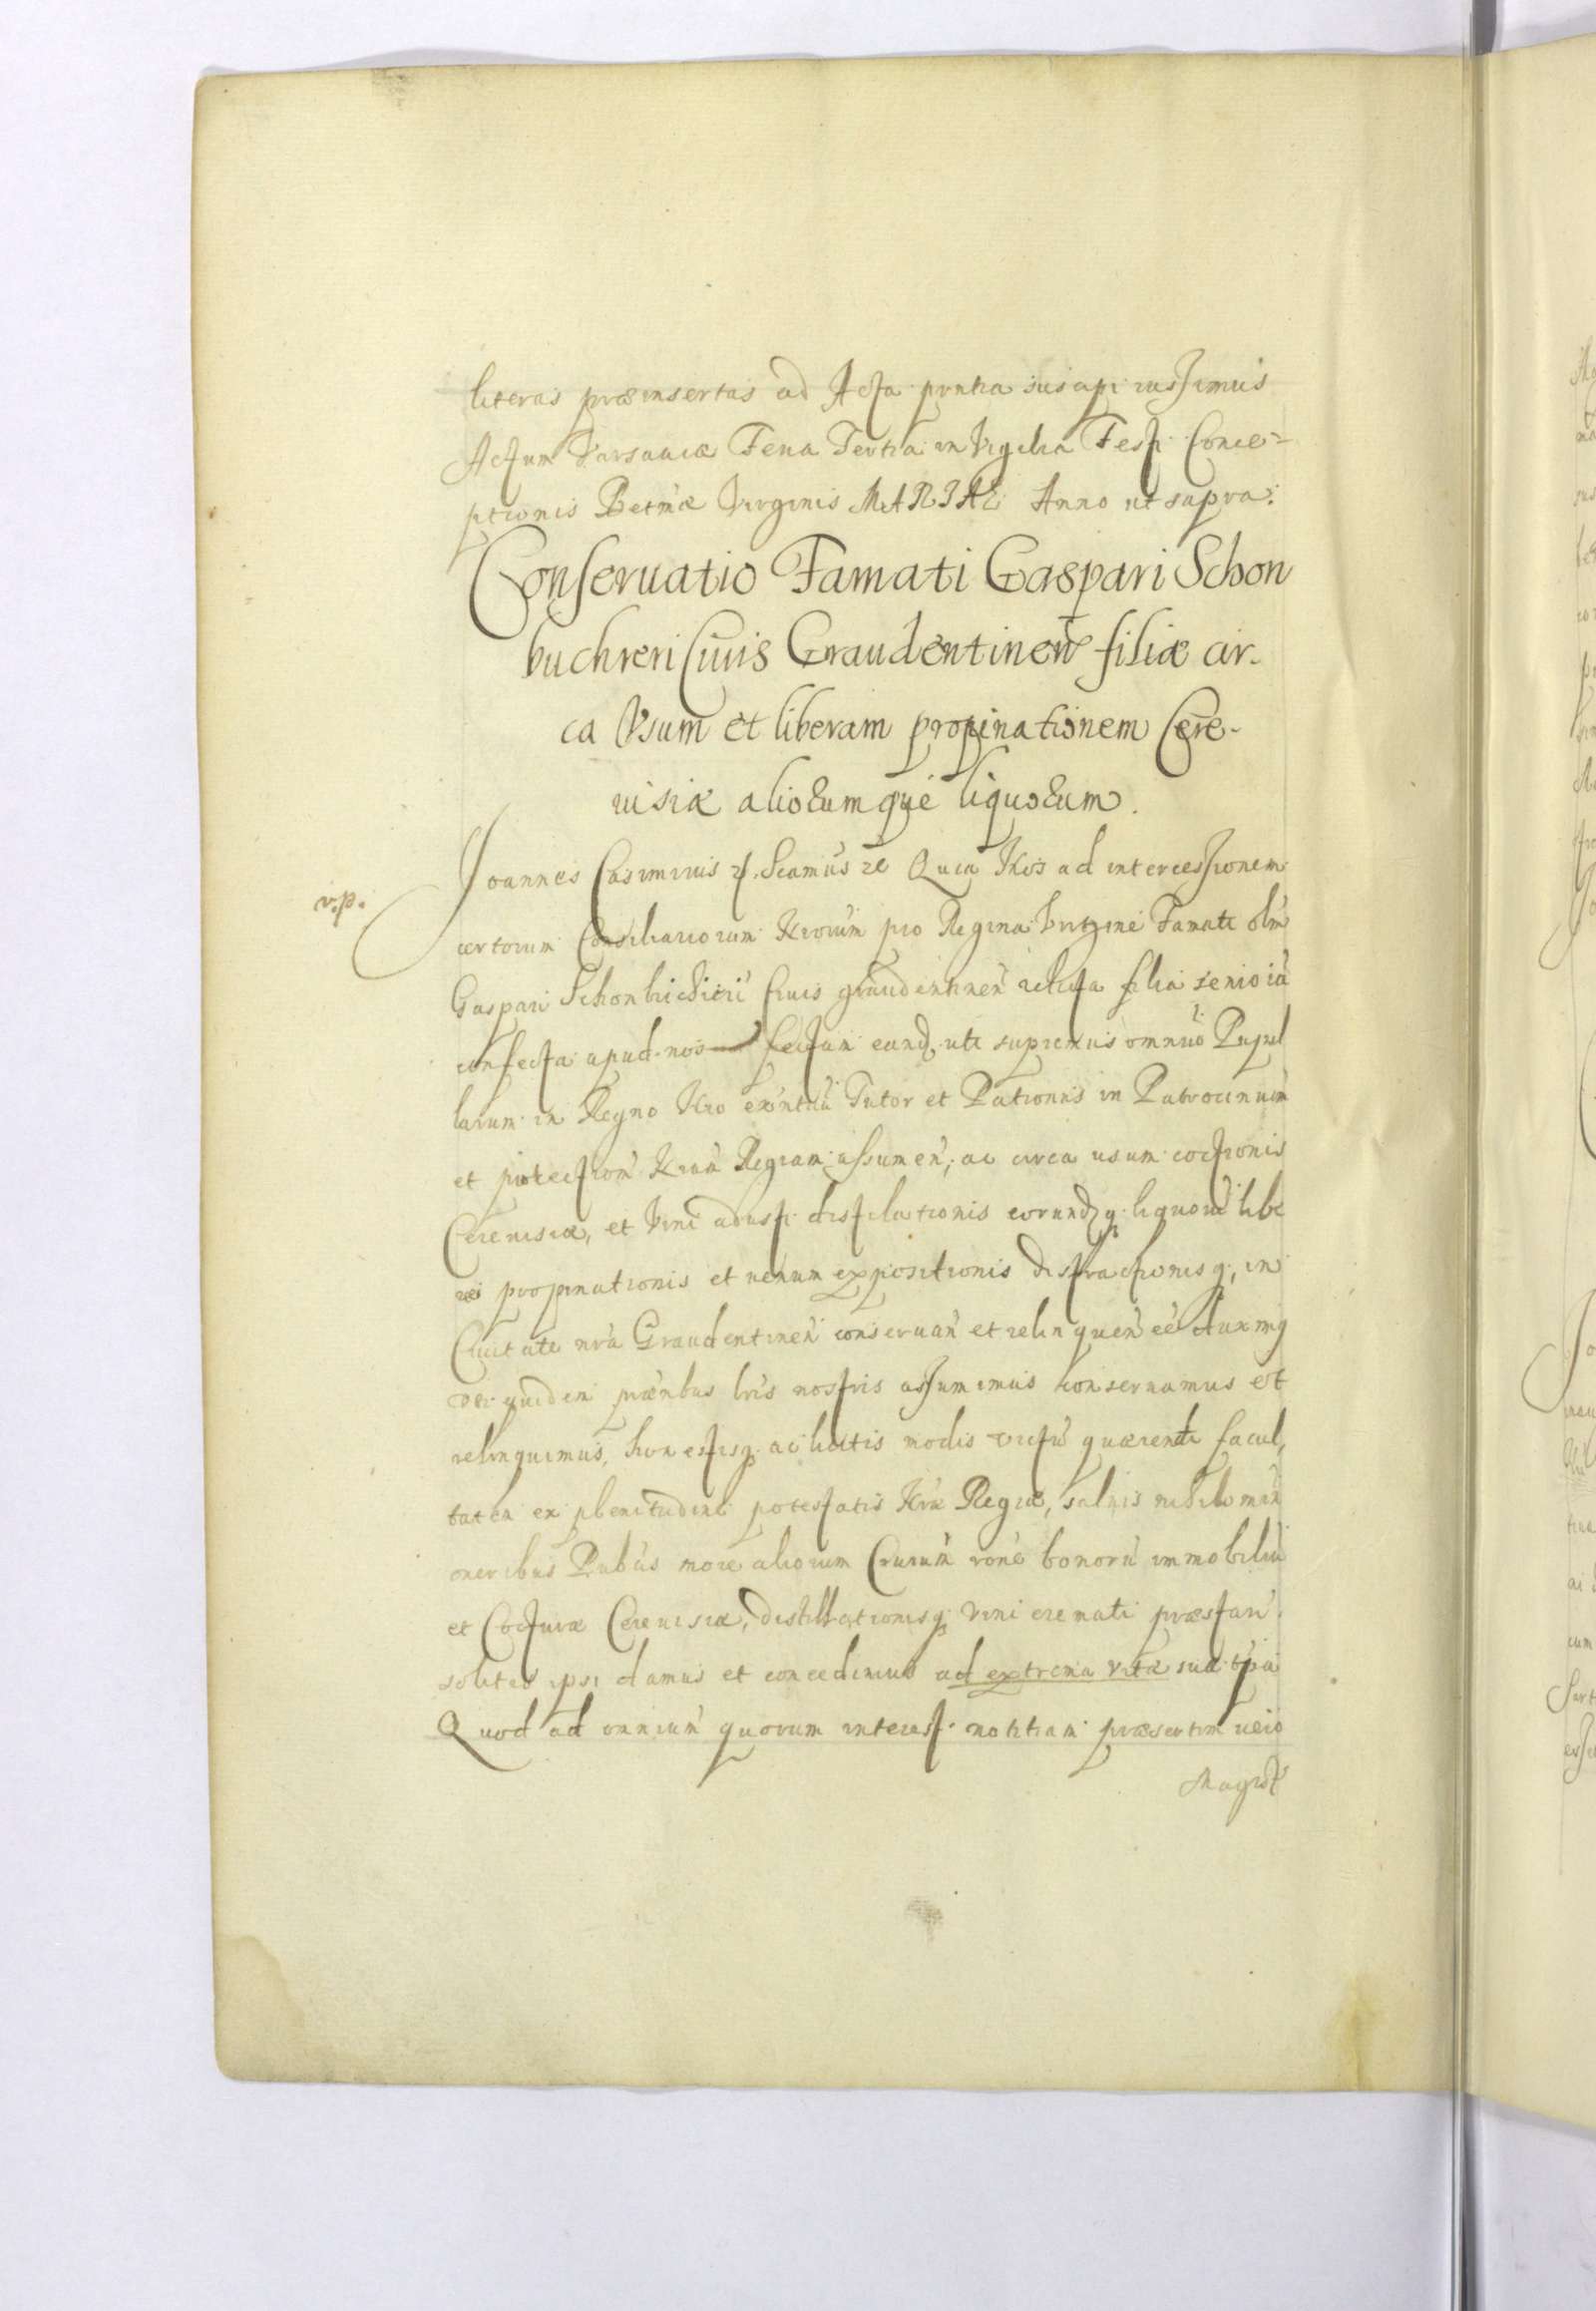 literas præinsertas ad Acta pñtia suscipi iussimus
Actum Varsauiæ Feria Tertia in Vigilia Festi Conce=
ptionis Beatmæ Virginis MARIAE Anno ut supra.
Conseruatio Famati Gaspari Schon
buchreri Ciuis Graudentineñ filiæ cir-
ca Vsum et liberam propinationem Cere-
uisiæ aliorumque liquorum.
v.p.
Joannes Casimirus Scamus Quia Nos ad intercessionem
certorum Consiliariorum Nrorum pro Regina Virgine Famati olim
Gaspari Schonbuchreri Ciuis graudentineñ relicta filia senio iã
confecta apud nos factam eand, uti supremus omnium Pupil
larum in Regno Nro exñtiũ Tutor et Patronus in Patrocinium
et protectionẽ Nrãm Regiam assumeñ, ac circa usum coctionis
Cereuisiæ, et Vini adusti distilationis eorundq liquorũ libe
ræ propinationis et uenum expositionis distractionisq, in
Ciuitate nrã Graudentineñ conseruañ et relinqueñ eẽ duximq
uti quidem præntibus lris nostris assumimus conseruamus et
relinquimus, honestisq ac licitis modis uictũ quærendi facul,
tatem ex plenitudine potestatis Nræ Regiæ, saluis nihilomiñ
oneribus Pubcis more aliorum Ciuium rone bonorũ immobiliũ
et Cocturæ Cereuisiæ, distillationisq Vini cremati præstari
solitis ipsi damus et concedimus ad extrema vitæ suæ tpa
Quod ad omnium quorum interest notitiam præsertim uero
Magist